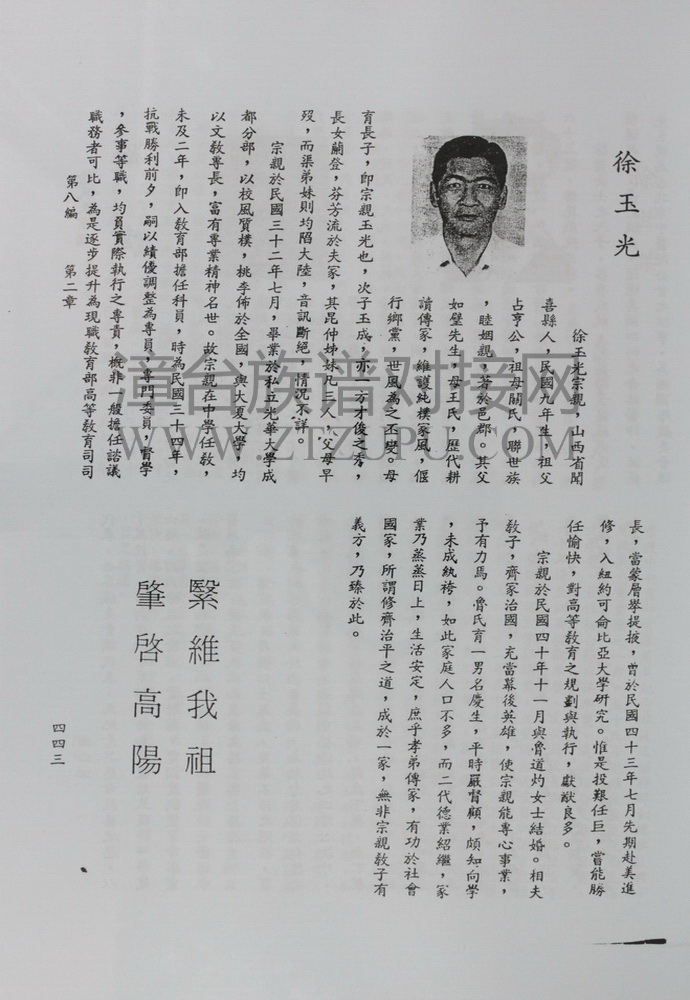 徐玉光
徐玉光宗親，山西省聞
喜縣人，民國九年生，祖父
占亨公，祖母關氏，聯世族
，睦姻親，若於邑郡。其父
如璧先生，母王氏，歷代耕
讀傳家，維護純樸家風，偃
行鄉黨，世風為之丕變。母
育長子，即宗親玉光也，次子玉成，亦一方才俊之秀，
長女蘭登，芬芳流於夫家，其昆仲姊妹凡三人，父母早
歿，而渠弟妹則均陷大陸，音訊斷絕，情況不詳。
宗親於民國三十二年七月，畢業於私立光華大學成
都分部，以校風質樸，桃李佈於全國，與大夏大學，均
以文教專長，富有專業精神名世。故宗親在中學任教，
未及二年，即入教育部擔任科員，時為民國三十四年，
抗戰勝利前夕，嗣以績優調整為專員，專門委員，督學
，參事等職，均員實際執行之專責，概非一般擔任諮議
職務者可比，為是逐步提升為現職教育部高等教育司司
第八編　第二章
長，當蒙層峯提掖，曾於民國四十三年七月先期赴美進
修，入紐約可倫比亞大學研究。惟是投艱任巨，嘗能勝
任愉快，對高等教育之規劃與執行，獻猷良多。
宗親於民國四十年十一月與魯道灼女士結婚。相夫
教子，齊家治國，充當幕後英雄，使宗親能專心事業，
予有力馬。魯氏育一男名慶生，平時嚴督顧，頗知向學
，未成紈袴，如此家庭人口不多，而二代德業紹繼，家
業乃蒸蒸日上，生活安定，庶乎孝弟傳家，有功於社會
國家，所謂修齊治平之道，成於一家，無非宗親教子有
義方，乃臻於此。
緊維我祖
肇啓高陽
四四三
漳台族谱对接网
WWW.ZTZUPU.COM